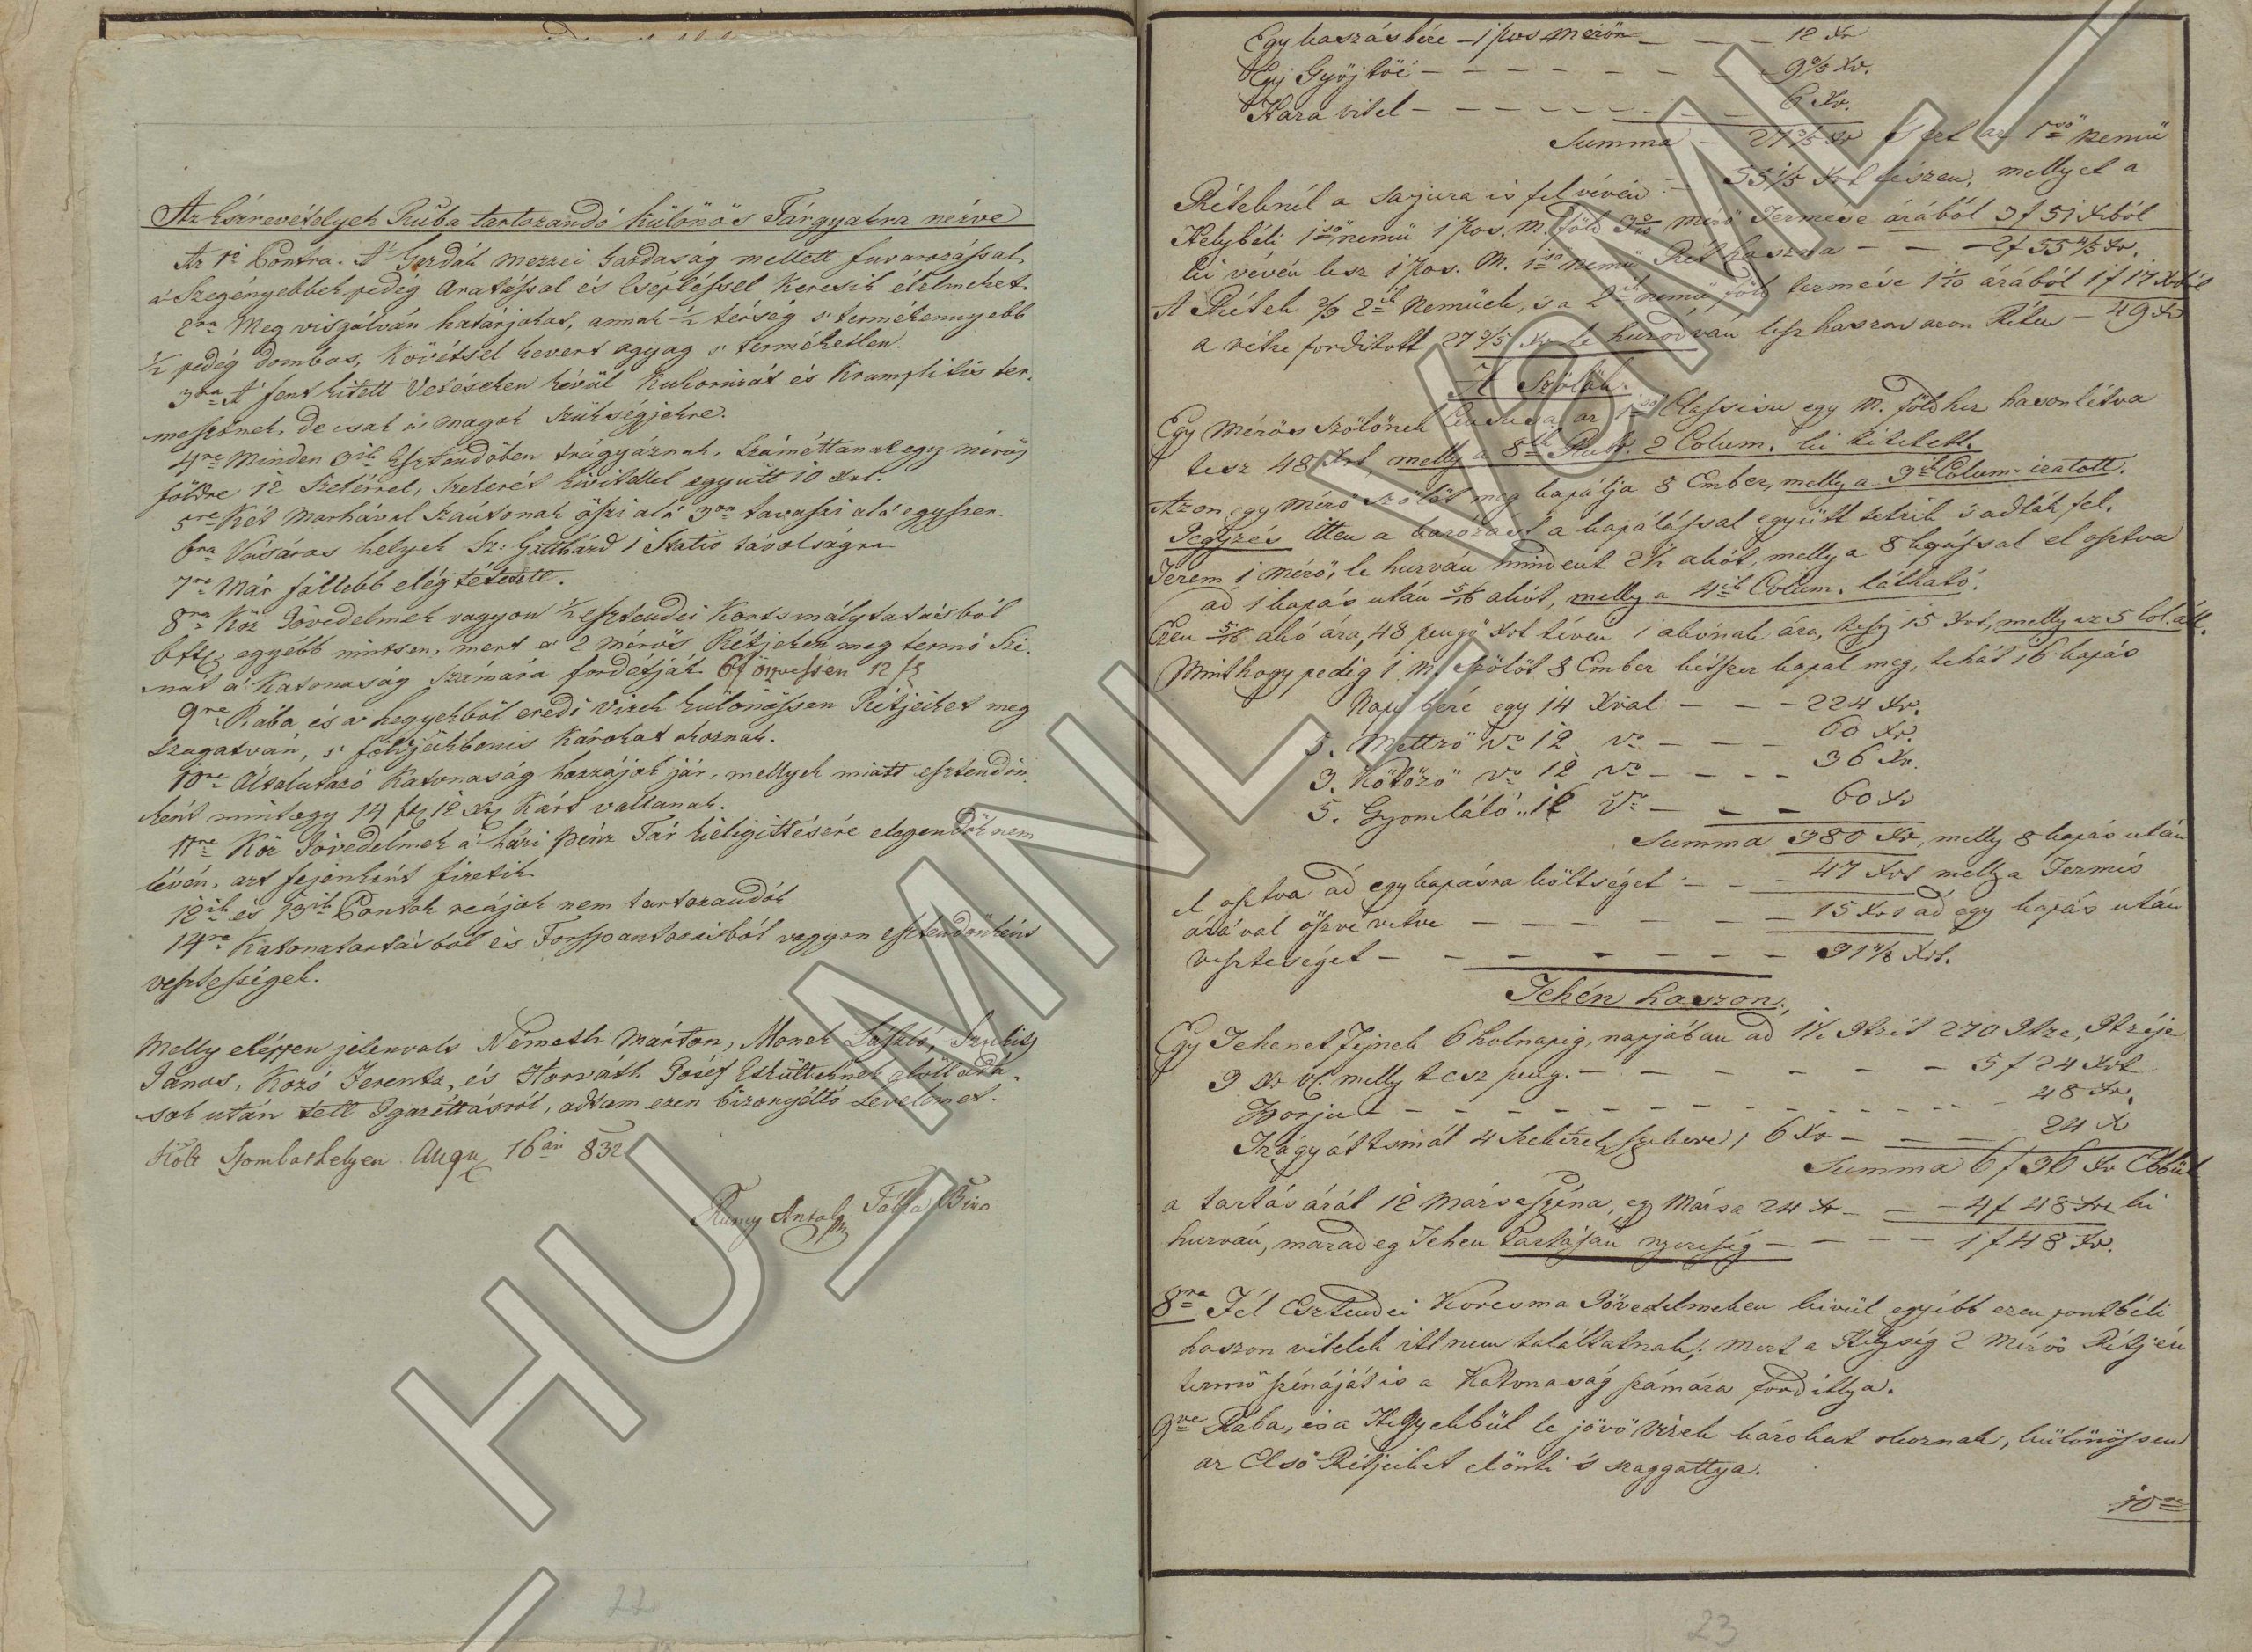 Az Észrevételyek Ruba tartozandó különös Tárgyakra nézve
Az 1ő Pontra. A' Gazdák mezzei Gazdaság mellett fuvarozással,
a' Szegényebbek pedég Aratással és Csepléssel Keresik élelmeket.
2ra Meg visgálván határjokat, annak ½ térség s' termékennyebb
½ pedég dombos, Kövétsel kevert agyag s' terméketlen.
3ra A' fent kitett Vetéseken kévül Kukoriczát és Krumplit is ter-
mesztenek, de csak a' magok Szükségjekre.
4re Minden 3ik Esztendőben trágyáznak, Száméttanak egy mérős
földre 12 Szekérrel, Szekerét kivitellel együtt 10 Xrt.
5re Két Marhával Szántonak öszi alá 3or tavaszi alá egyszer.
6ra Vásáros helyek Sz: Gotthárd 1 Statio távolságra
7re Már föllebb elég tétetett.
8ra Köz Jövedelmek vagyon ½ esztendei Kortsmálytatásból
6 ft, egyébb nintsen, mert a' 2 mérős Rétjeken meg termő Szé-
nát a' Katonaság Számára fordétják. 6 f öszvessen 12 f
9re Rába és a' hegyekből eredő vizek különössen Rétjeiket meg
Szagatván, s' földjeikbenis Károkat okoznak.
10re Által utazó Katonaság hozzájok jár, mellyek miatt esztendőn-
ként mintegy 14 ft 12 Xr Kárt vallanak.
11re Köz Jövedelmek a' házi pénz Tár kielégittésére elegendők nem
lévén, azt fejenként fizetik.
12ik és 13ik Pontok reájok nem tartozandók.
14re Katonatartásból és Forspontozásból vagyon esztendőnként
vesztességek.
Melly eképpen jelenvaló Németh Márton, Monek László,
János, Kozó Ferentz, és Horváth Josef Eskütteknek előtt adá-
sok után tett Igazéttásról, adtam ezen bizonyéttó Levelemet.
Költ Szombathelyen Augu 16án 832
Rumy Antal Tábla Biró
22
Egy kaszás bére 1 pos mérőn — 12 Xr
Egy Gyöjtőé — 9 3/5 Xr.
Haza vitel — 6 Xr.
Summa — 27 3/5 Xr s' ezt az 1ső nemü
Réteknél a sarjura is felvévén — 55 1/5 Xrt tészen, mellyet a
Helybéli 1ső nemü 1 pos. M. föld 3 3/10 mérő Termése árából 3 f 51 Xrból
ki vévén lesz 1 pos. M. 1ső nemü Rét haszna — 2 f 55 4/5 Xr.
A Rétek 2/3 2ik Nemüek, s a 2ik nemü föld termése 1 1/10 árából 1 f 17 Xrból
a rétre forditott 27 3/5 Xr le huzódván lesz haszon azon Réten — 49 Xr
A Szőlők.
Egy Mérős szőlőnek Census az 1ső Classisu egy M. földhez hasonlitva
tesz 48 Xrt, melly a 8ik Rubr. 2 Colum. ki tétetett.
Azon egy mérő szőlöt meg kapálja 8 Ember, melly a 3ik Colum. iratott.
Jegyzés Itten a karózást a kapálással együtt tetzik s adták fel.
Terem 1 mérő, le huzván mindent 2½ akót, melly a 8 kapással el osztva
ad 1 kapás után 5/16 akót, melly a 4ik Colum. látható.
Ezen 5/16 akó ára, 48 pengő Xrt tévén 1 akónak ára, tesz 15 Xrt, melly az 5 Col. áll.
Minthogy pedig 1 M. szőlőt 8 Ember kétszer kapál meg, tehát 16 kapás
Napi béré egy 14 Xral — 224 Xr.
5. Mettző vo 12 vo — 60 Xr.
3. Kötöző vo 12 vo — 36 Xr.
5. Gyomláló " 12 vo — 60 Xr
Summa 380 Xr, melly 8 kapás után
el osztva ad egy kapásra költséget — 47 Xrt melly a Termés
árával öszve vetve — 15 Xrt ad egy kapás után
veszteséget — 31 4/8 Xrt.
Tehén haszon.
Egy Tehenet Fejnek 6 holnapig, napjában ad 1½ Itzét 270 Itze, Itzéje
3 Xr vf. melly tesz peng. — 5 f 24 Xrt
Borju — 48 Xr.
Trágyát tsinál 4 Szekérek, Szekere, 6 Xr — 24 X
Summa 6 f 36 Xr Ebbül
a tartás árát 12 Mársa széna, egy Mársa 24 Xr — 4 f 48 Xr ki
huzván, marad eg Tehen tartásán nyereség — 1 f 48 Xr.
8ra Fél Esztendei Korcsma Jövedelmeken kivül egyébb ezen pontbéli
haszon vételek itt nem találtatnak; mert a Helység 2 Mérős Rétjén
termő szénáját is a Katonaság számára fordittya.
9re Rába, és a Hegyekbül le jövő Vizek károkat okoznak, különössen
az Első Rétjeiket elönti s szaggattya.
10re
23